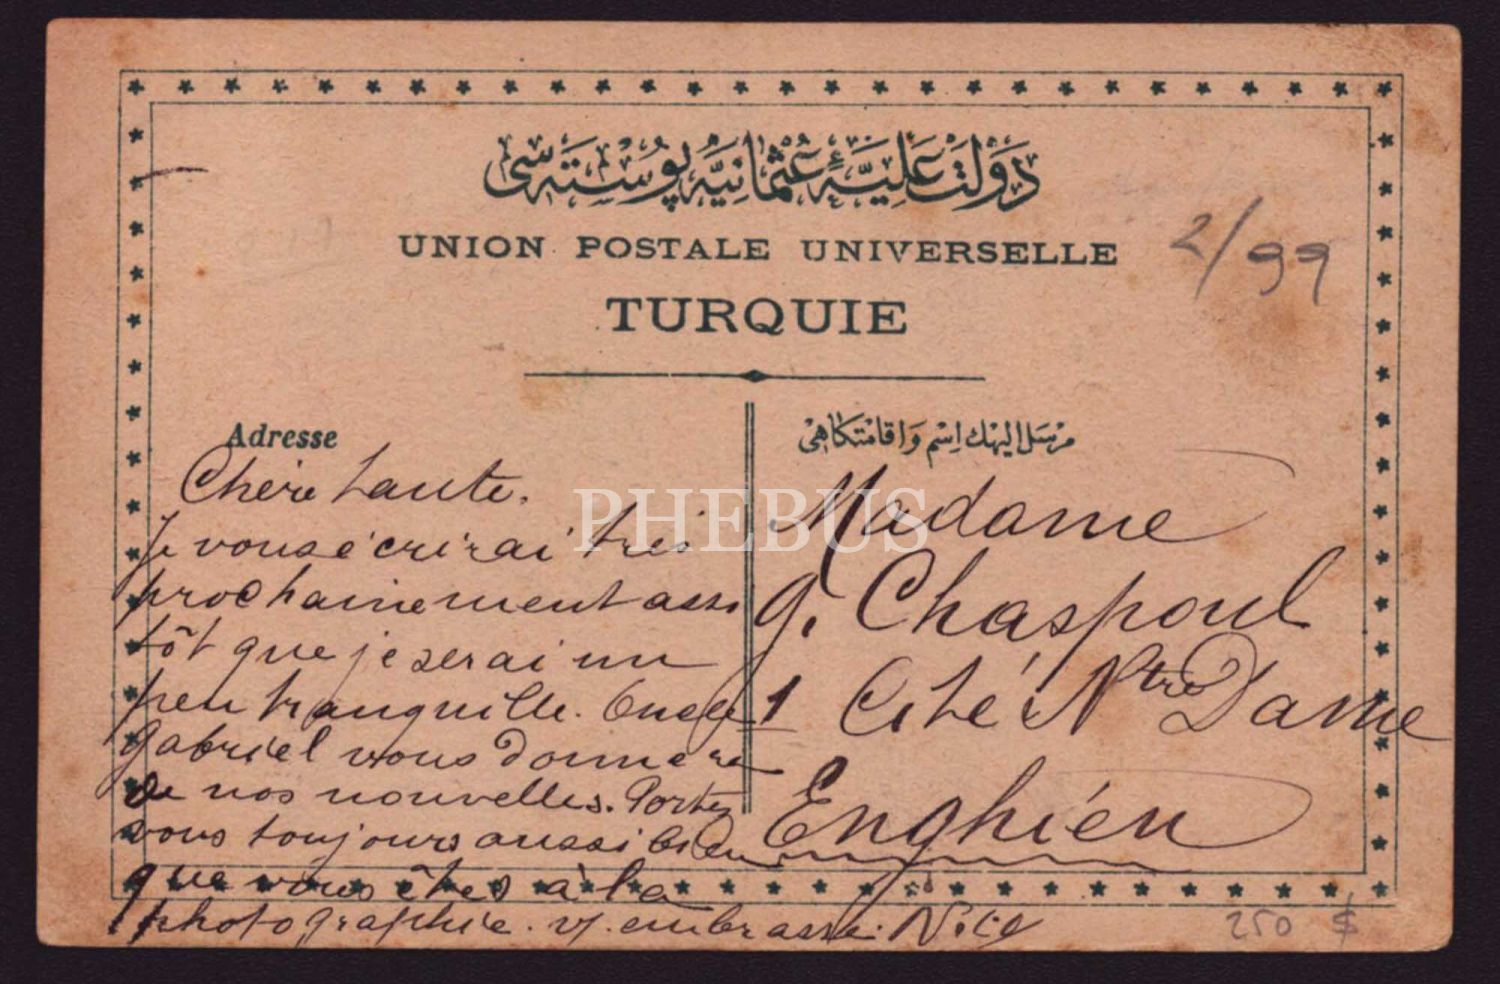 دَوْلَتِ عَلِيَّهٔ عُثْمَانِيَّه پُوسْتَه سِى
UNION POSTALE UNIVERSELLE
TURQUIE
2/99
Adresse
Chère tante.
Je vous écrirai très
prochainement aussi
tôt que je serai un
peu tranquille. Oncle
Gabriel vous donnera
de nos nouvelles. Portez
vous toujours aussi bien
que vous êtes à la
photographie. embrasse
مرسل اليهك اسم و اقامتكاهى
Madame
G. Chaspoul
1 Cité Ntre Dame
Enghien
250 $
PHEBUS